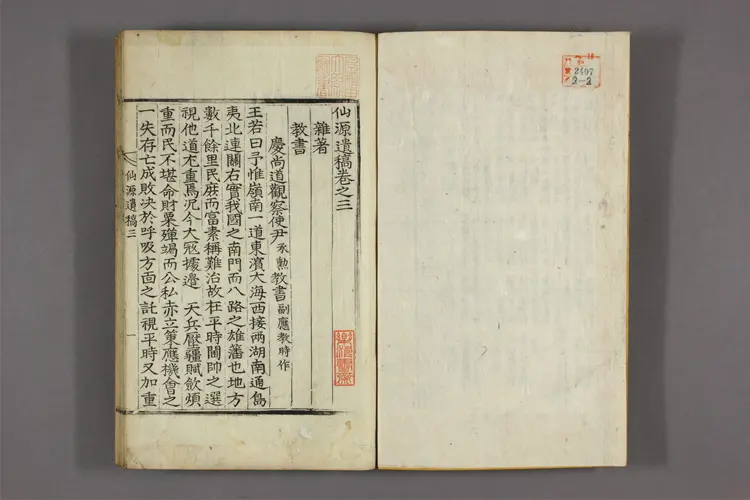 仙源遺稿卷之三
雜著
教書
慶尙道觀察使尹承勳教書副應教時作
王若曰予惟嶺南一道東濱大海西接兩湖南通島
夷北連關右實我國之南門而八路之雄藩也地方
數千餘里民庶而富素稱難治故在平時閫帥之選
視他道尤重焉況今大冦據邊 天兵壓疆賦歛煩
重而民不堪命財粟殫竭而公私赤立策應機會之
一失存亡成敗決於呼吸方面之託視平時又加重
仙源遺稿三
一
2407
2-2